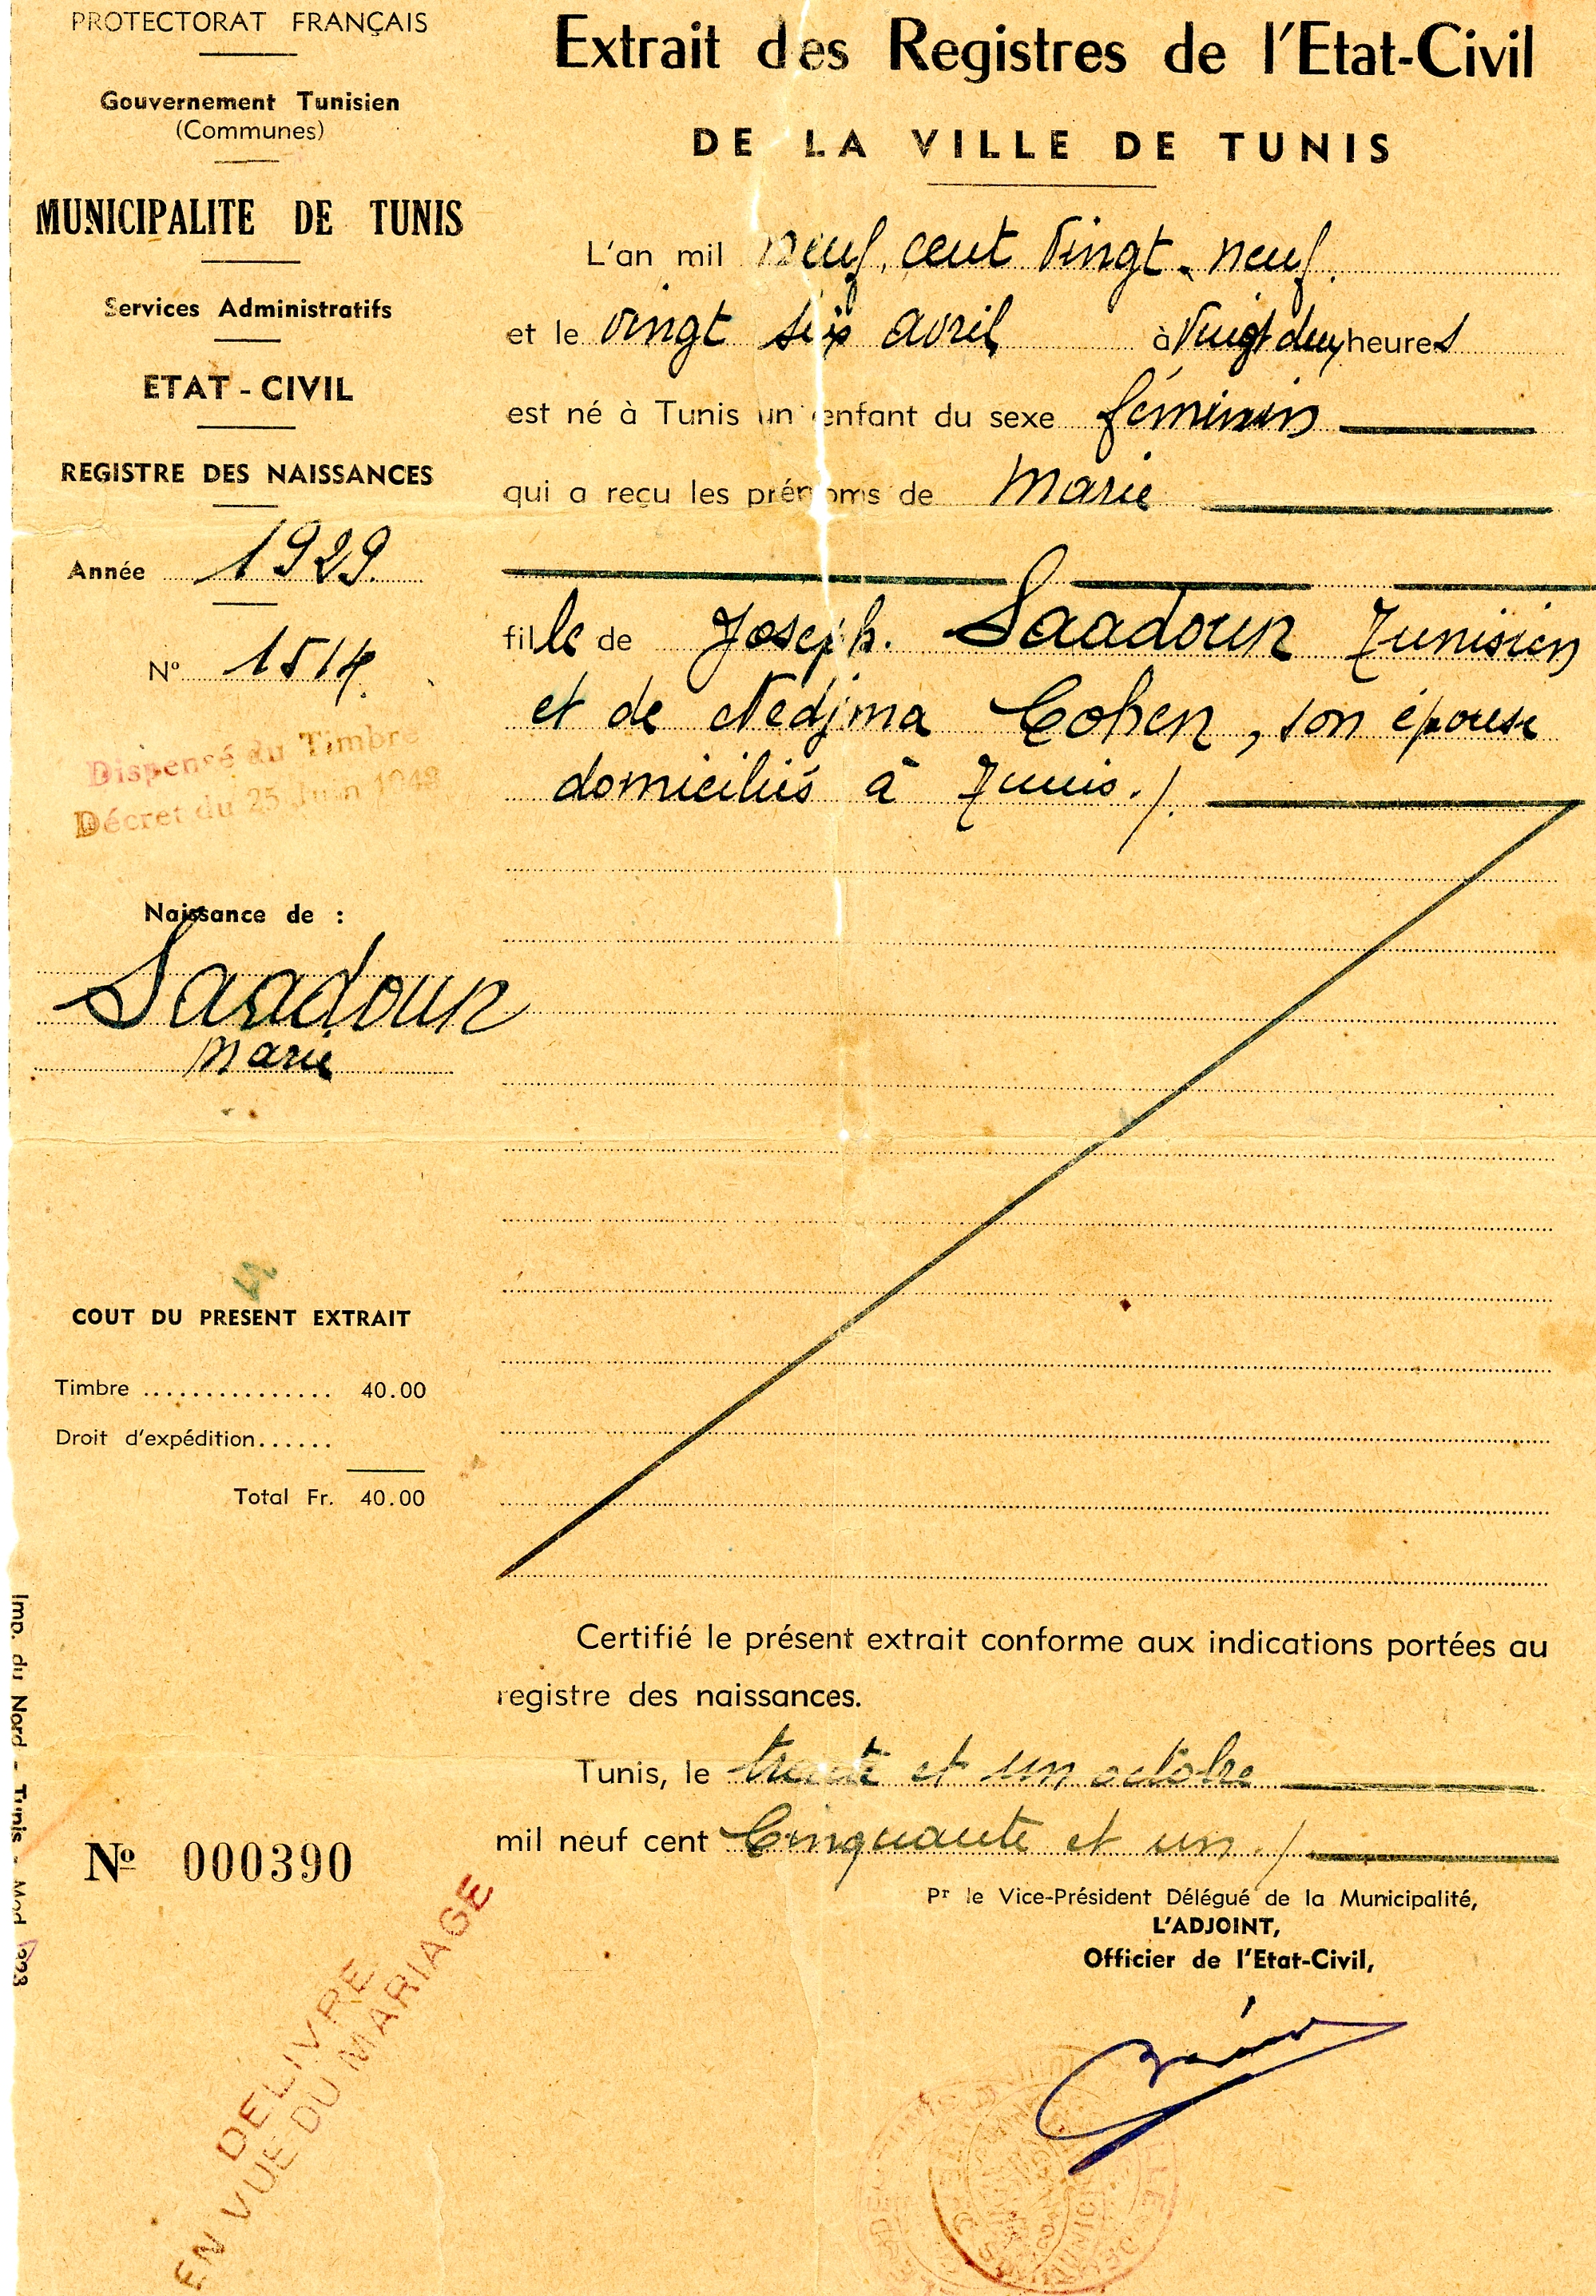 PROTECTORAT FRANÇAIS
Gouvernement Tunisien
(Communes)
MUNICIPALITE DE TUNIS
Services Administratifs
ETAT - CIVIL
REGISTRE DES NAISSANCES
Année 1929.
N° 1514
Dispensé du Timbre
Décret du 25 Juin 1942
Naissance de :
Saadoun
Marie
COUT DU PRESENT EXTRAIT
Timbre ............... 40.00
Droit d'expédition......
Total Fr. 40.00
Imp. du Nord - Tunis - Mod 1223
Nº 000390
DELIVRE
EN VUE DU MARIAGE
Extrait des Registres de l'Etat-Civil
DE LA VILLE DE TUNIS
L'an mil neuf cent vingt-neuf
et le vingt six avril à vingt deux heures
est né à Tunis un enfant du sexe féminin
qui a reçu les prénoms de Marie
fille de Joseph. Saadoun Tunisien
et de Nedjma Cohen, son épouse
domiciliés à Tunis./.
Certifié le présent extrait conforme aux indications portées au
registre des naissances.
Tunis, le trente et un octobre
mil neuf cent Cinquante et un ./
Pr le Vice-Président Délégué de la Municipalité,
L'ADJOINT,
Officier de l'Etat-Civil,